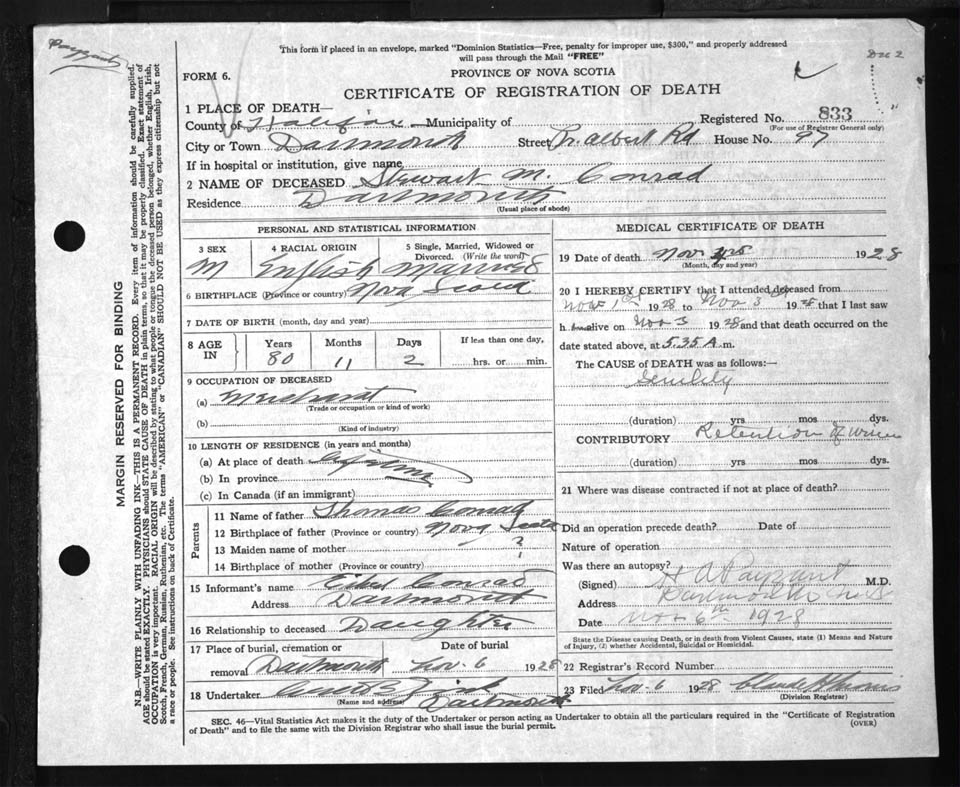 Payzant
Dec 2
This form if placed in an envelope, marked "Dominion Statistics—Free, penalty for improper use, $300," and properly addressed
will pass through the Mail "FREE"
FORM 6.
PROVINCE OF NOVA SCOTIA
CERTIFICATE OF REGISTRATION OF DEATH
1 PLACE OF DEATH—
Registered No. 833
(For use of Registrar General only)
County of Halifax Municipality of
City or Town Dartmouth Street Pr. Albert Rd House No. 97
If in hospital or institution, give name
2 NAME OF DECEASED Stewart M. Conrad
Residence Dartmouth
(Usual place of abode)
PERSONAL AND STATISTICAL INFORMATION
3 SEX 4 RACIAL ORIGIN 5 Single, Married, Widowed or
Divorced. (Write the word)
M English Married
6 BIRTHPLACE (Province or country) Nova Scotia
7 DATE OF BIRTH (month, day and year)
8 AGE IN Years Months Days If less than one day,
80 11 2 hrs. or min.
9 OCCUPATION OF DECEASED
(a) Merchant
(Trade or occupation or kind of work)
(b)
(Kind of industry)
10 LENGTH OF RESIDENCE (in years and months)
(a) At place of death Lifetime
(b) In province
(c) In Canada (if an immigrant)
Parents
11 Name of father Thomas Conrad
12 Birthplace of father (Province or country) Nova Scotia
13 Maiden name of mother ?
14 Birthplace of mother (Province or country) ?
15 Informant's name Ethel Conrad
Address Dartmouth
16 Relationship to deceased Daughter
17 Place of burial, cremation or Date of burial
removal Dartmouth Nov. 6 1928
18 Undertaker
(Name and address) Dartmouth
MEDICAL CERTIFICATE OF DEATH
19 Date of death Nov 3rd 1928
(Month, day and year)
20 I HEREBY CERTIFY that I attended deceased from
Nov 1st 1928 to Nov 3rd 1928 that I last saw
h im alive on Nov 3 1928 and that death occurred on
date stated above, at 5.35 A.m.
The CAUSE OF DEATH was as follows:
Senility
(duration) yrs mos dys.
CONTRIBUTORY Retention of Urine
(duration) yrs mos dys.
21 Where was disease contracted if not at place of death?
Did an operation precede death? Date of
Nature of operation
Was there an autopsy?
(Signed) H A Payzant M.D.
Address Dartmouth N.S
Date Nov 6th 1928
State the Disease causing Death, or in death from Violent Causes, state (1) Means and Nature
of Injury, (2) whether Accidental, Suicidal or Homicidal.
22 Registrar's Record Number
23 Filed Nov. 6 1928
(Division Registrar)
SEC. 46—Vital Statistics Act makes it the duty of the Undertaker or person acting as Undertaker to obtain all the particulars required in the "Certificate of Registration
of Death" and to file the same with the Division Registrar who shall issue the burial permit.
(OVER)
MARGIN RESERVED FOR BINDING
N.B.—WRITE PLAINLY WITH UNFADING INK—THIS IS A PERMANENT RECORD. Every item of information should be carefully supplied.
AGE should be stated EXACTLY. PHYSICIANS should STATE CAUSE OF DEATH in plain terms, so that it may be properly classified. Exact statement of
OCCUPATION is very important. RACIAL ORIGIN will be described by stating to what people or tongue the deceased person belonged, whether English, Irish,
Scotch, French, German, Russian, Ruthenian, etc. The terms "AMERICAN" or "CANADIAN" SHOULD NOT BE USED as they express citizenship but not
a race or people. See instructions on back of Certificate.